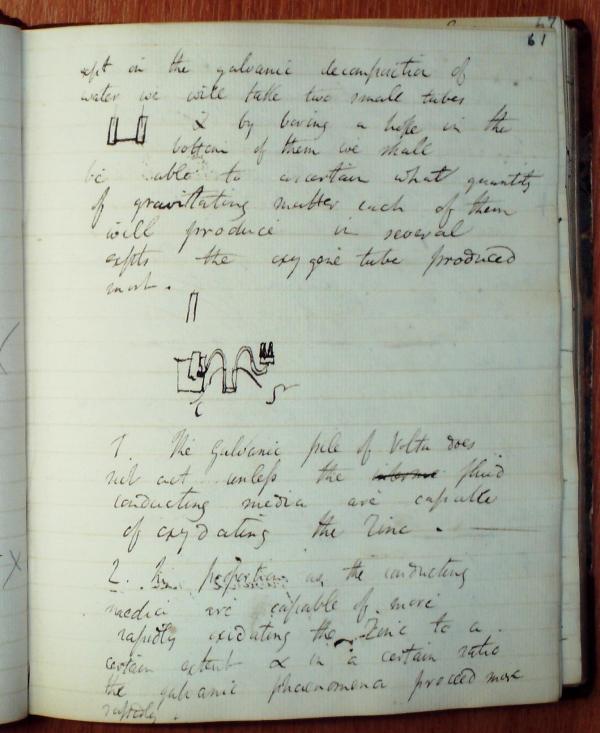 61
expt on the galvanic decomposition of
water we will take two small tubes
& by boring a hole in the
bottom of them we shall
be able to ascertain what quantity
of gravitating matter each of them
will produce in several
expts the oxygene tube produced
most.
1. The galvanic pile of Volta does
not act unless the fluid
conducting media are capable
of oxydating the Zinc.
2. In proportion as the conducting
media are capable of more
rapidly oxidating the Zinc to a
certain extent & in a certain ratio
the galvanic phaenomena proceed more
rapidly.